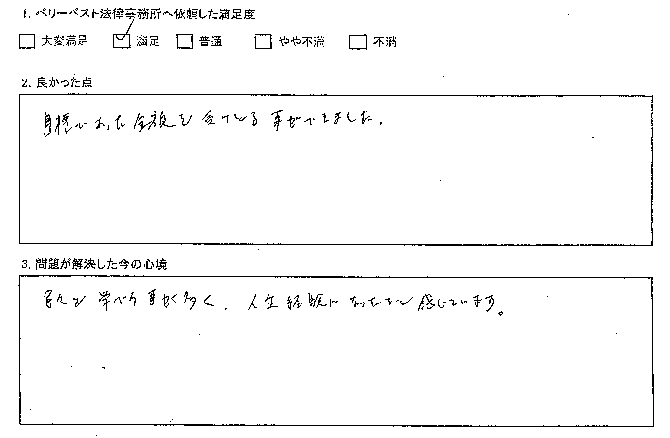 1. ベリーベスト法律事務所へ依頼した満足度
□ 大変満足 ☑ 満足 □ 普通 □ やや不満 □ 不満
2. 良かった点
目標であった金額を 受けとる 事ができました。
3. 問題が解決した今の心境
学べる事が多く、人生経験になったと感じています。